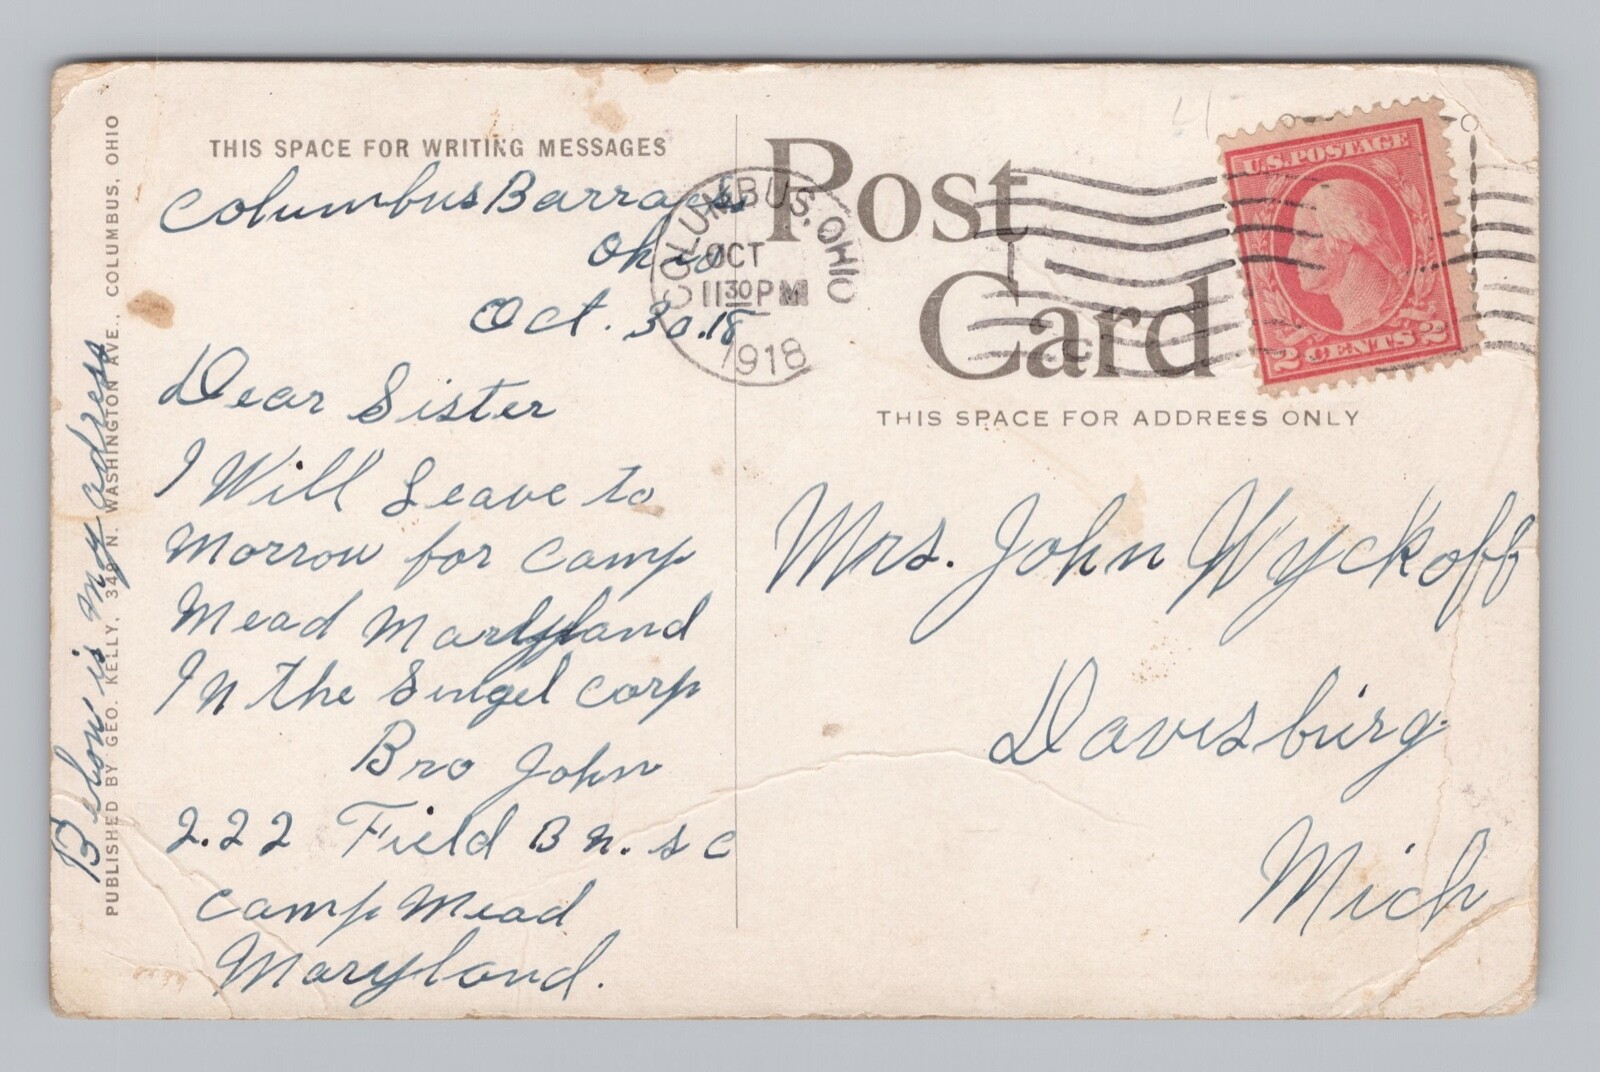 THIS SPACE FOR WRITING MESSAGES
Columbus Barracks
Ohio
Oct. 30.18
Dear Sister
I Will Leave to
Morrow for Camp
Mead Maryland
In the Singel Corp
Bro John
2.22 Field Bn. S C
Camp Mead
Maryland.
Below is my adress
PUBLISHED BY GEO. KELLY, 349 N. WASHINGTON AVE., COLUMBUS, OHIO
Post
Card
THIS SPACE FOR ADDRESS ONLY
COLUMBUS, OHIO
OCT
11 30 PM
1918
U.S. POSTAGE
2 CENTS 2
Mrs. John Wyckoff
Davisburg
Mich